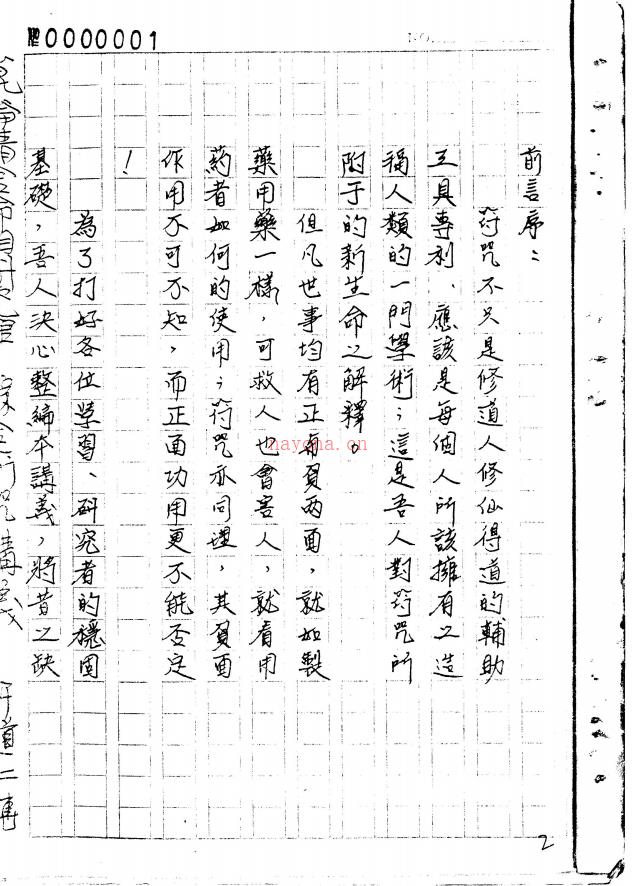 №0000001
NO.
前言序：
符咒不只是修道人修仙得道的輔助
工具專利、應該是每個人所該擁有之造
福人類的一門學術；這是吾人對符咒所
附于的新生命之解釋。
但凡世事均有正有負兩面，就如製
藥用藥一樣，可救人也會害人，就看用
葯者如何的使用；符咒亦同理，其負面
作用不可不知，而正面功用更不能否定
！
為了打好各位學習、研究者的穩固
基礎，吾人決心整編本講義，將昔之缺
nayona.cn
2